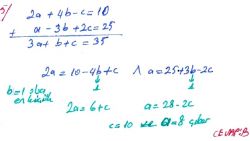 5/
2a + 4b - c = 10
+ a - 3b + 2c = 25
3a + b + c = 35
2a = 10 - 4b + c ∧ a = 25 + 3b - 2c
b = 1 olsa
1 1
2a = 6 + c a = 28 - 2c
c = 10 a = 8 çıkar
CEVAP: B